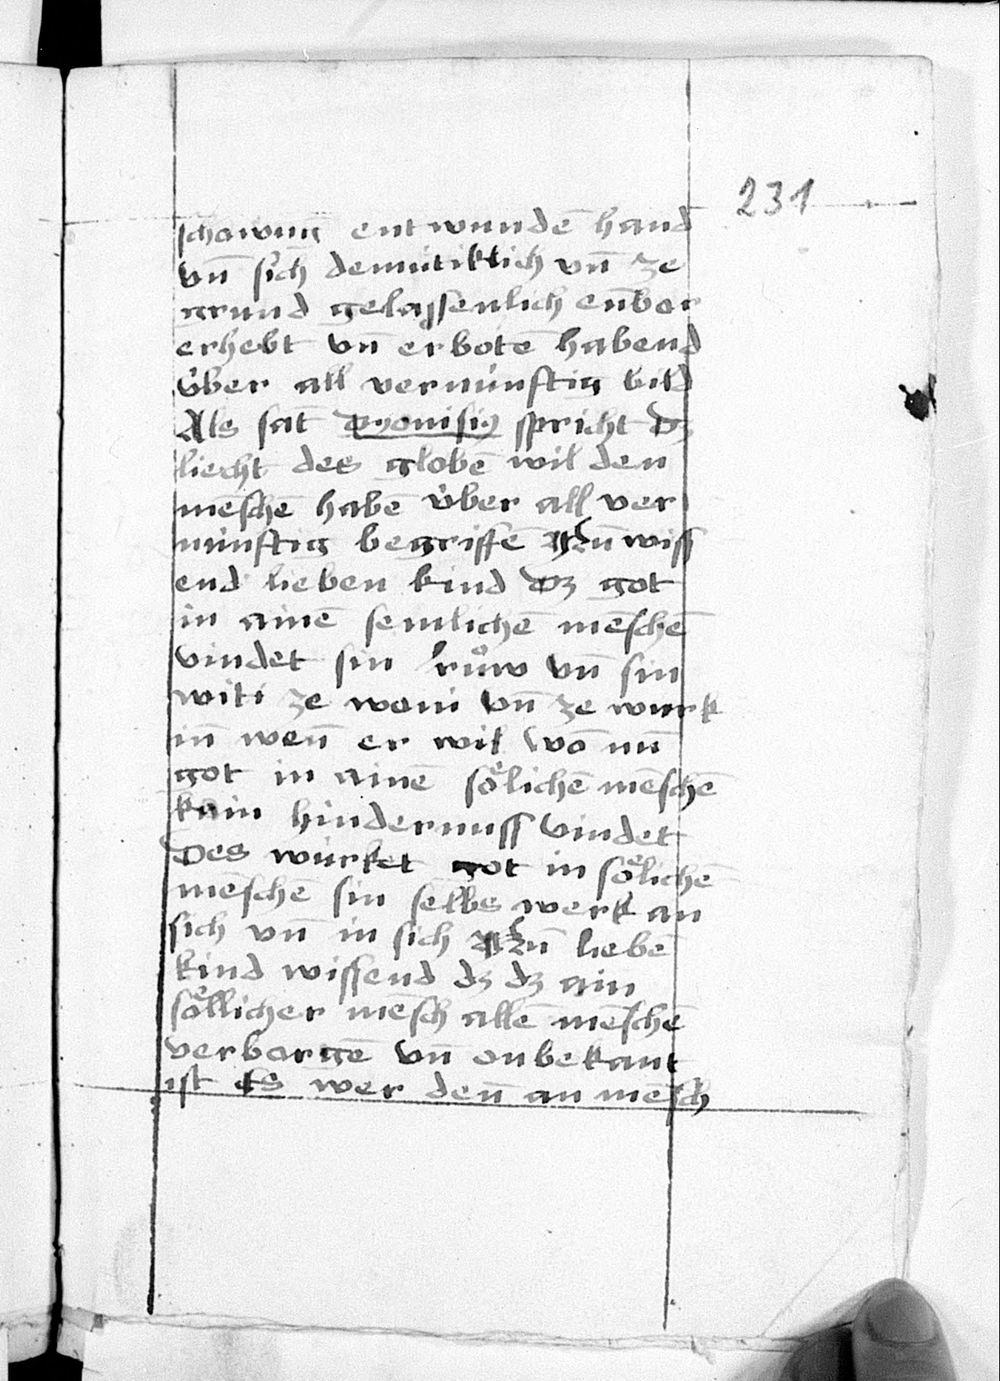 231
schowung entwundē hand
vn̄ sich demütiklich vn̄ ze
grund gelassenlich en̄bor
erhebt vn̄ erbotē habend
über all vernünftig bild
Als sāt dyonisiꝯ spricht dꝫ
liecht des globē wil den
mēschē habē über all ver
nünftig begriffē Nūn wiss
end lieben kind dꝫ got
in ainē semlichē mēschē
vindet sin ruͦw vn̄ sin
witi ze woni vn̄ ze wurk
in̄ wen̄ er wil wō nū
got in ainē soͤlichē mēschē
kain hindernuss vindet
Des würket got in soͤlichē
mēschē sin selbs werk an
sich vn̄ in sich Nūn liebē
kind wissend dꝫ dꝫ ain
soͤllicher mēsch allē mēschē
verborgē vn̄ onbekant
ist Es wer den̄ an mēsch